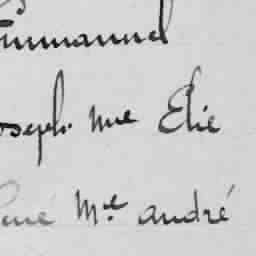 Emmanuel
oseph. Mie Elie
ené M.e andré